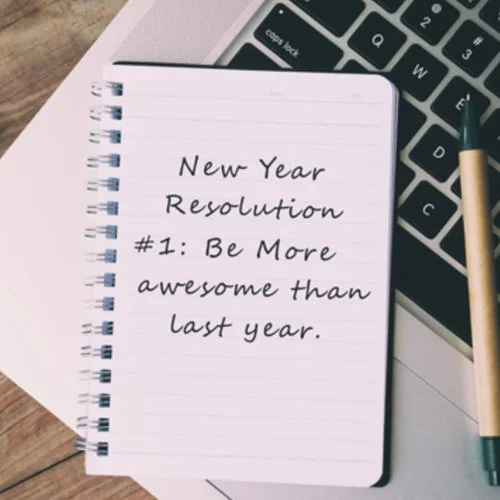 New Year
Resolution
#1: Be More
awesome than
last year.
caps lock
Q
W
E
D
C
@
2
#
3